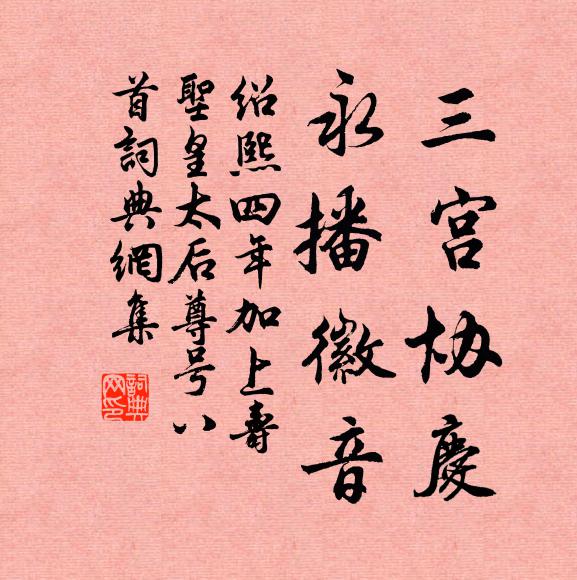 三宫协慶
永播徽音
绍熙四年加上壽
聖皇太后尊号八
首詞典網集
詞典网印